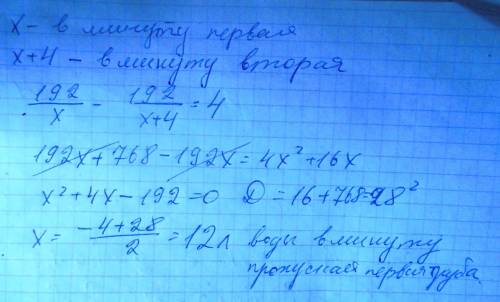 x - в минуту первая
x+4 - в минуту вторая
192/x - 192/(x+4) = 4
192x + 768 - 192x = 4x² + 16x
x² + 4x - 192 = 0 D = 16 + 768 = 28²
x = (-4+28)/2 = 12л воды в минуту
пропускает первая труба.